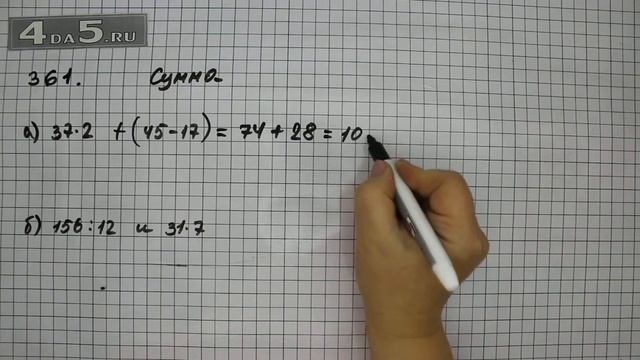 4DA5.RU
361. Сумма
а) 37·2 + (45-17) = 74 + 28 = 10
б) 156:12 и 31·7